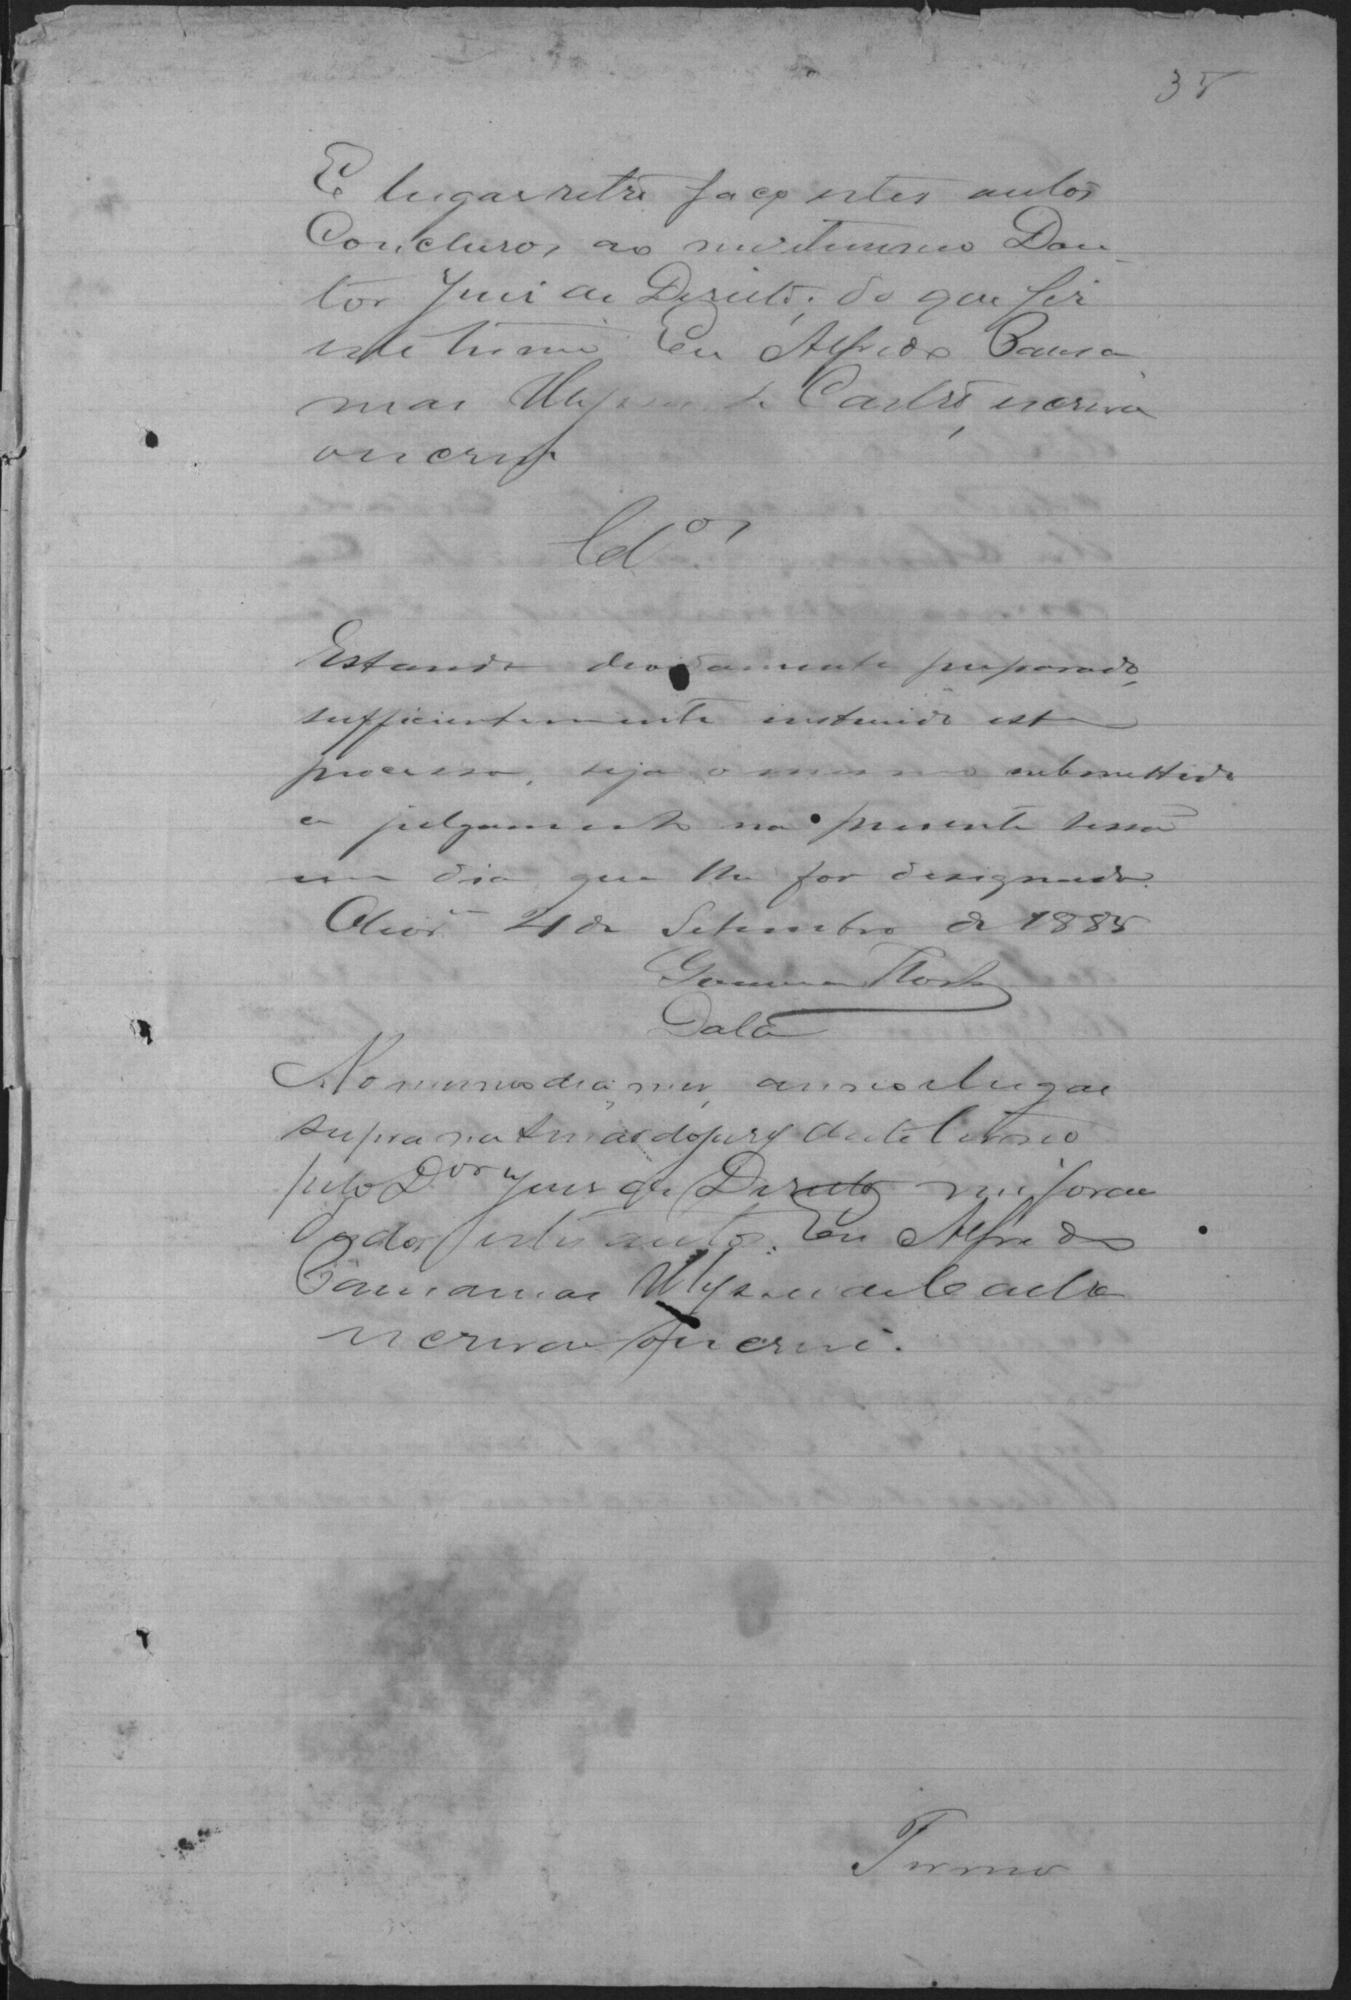 35
E lugar retro faço estes autos
Conclusos ao meritissimo Dou-
tor Juiz de Direito; do que fiz
este termo. Eu Alfredo Pauza
mar Ulysses de Castro, escrivão
o escrevi.
Cl.os
Estando devidamente preparado,
sufficientemente instruido este
processo, seja o mesmo submettido
a julgamento na presente sessão
em dia que lhe for designado.
4 de Setembro de 1885
Gomes
Data
No mesmo dia, mez, anno e lugar
supra na do jury deste termo
pelo D.or Juiz de Direito me forão
dados estes autos. Eu Alfredo
Ulysses de Castro
escrivão o escrevi.
Termo